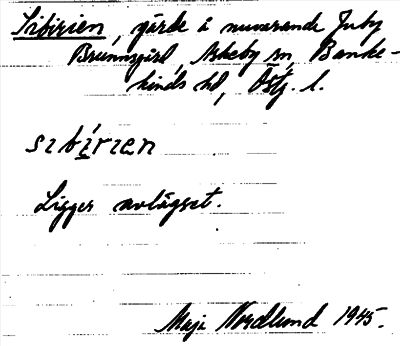 Sibirien, gärde å nuvarande Juby
Brunnsgård, Askeby sn Banke-
kinds hd, Östg. l.
sɩbí̱rɩen
Ligger avlägset.
Maja Nordlund 1945.